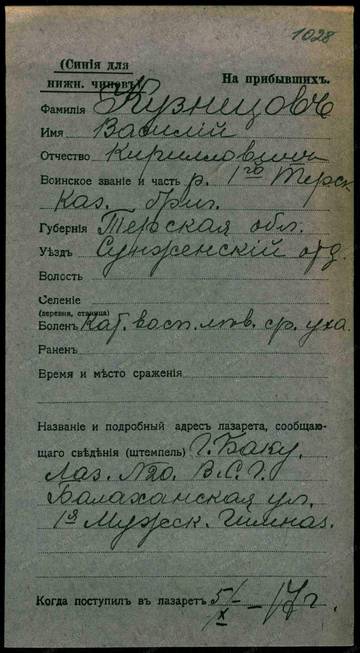 1028
(Синія для
нижн. чиновъ)
На прибывшихъ.
Фамилія Кузнецовъ
Имя Василій
Отчество Кирилловичъ
Воинское званіе и часть р. 1го Терск
Каз. бриг.
Губернія Терская обл.
Уѣздъ Сунженскій отд.
Волость
Селеніе
(деревня, станица)
Боленъ Кат. восп. лѣв. ср. уха
Раненъ
Время и мѣсто сраженія
Названіе и подробный адресъ лазарета, сообщаю-
щаго свѣдѣнія (штемпель) г. Баку,
Лаз. №20. В.С.Г.
Балаханская ул.
1я Мужск. Гимназ.
Когда поступилъ въ лазаретъ 5/X – 17 г.